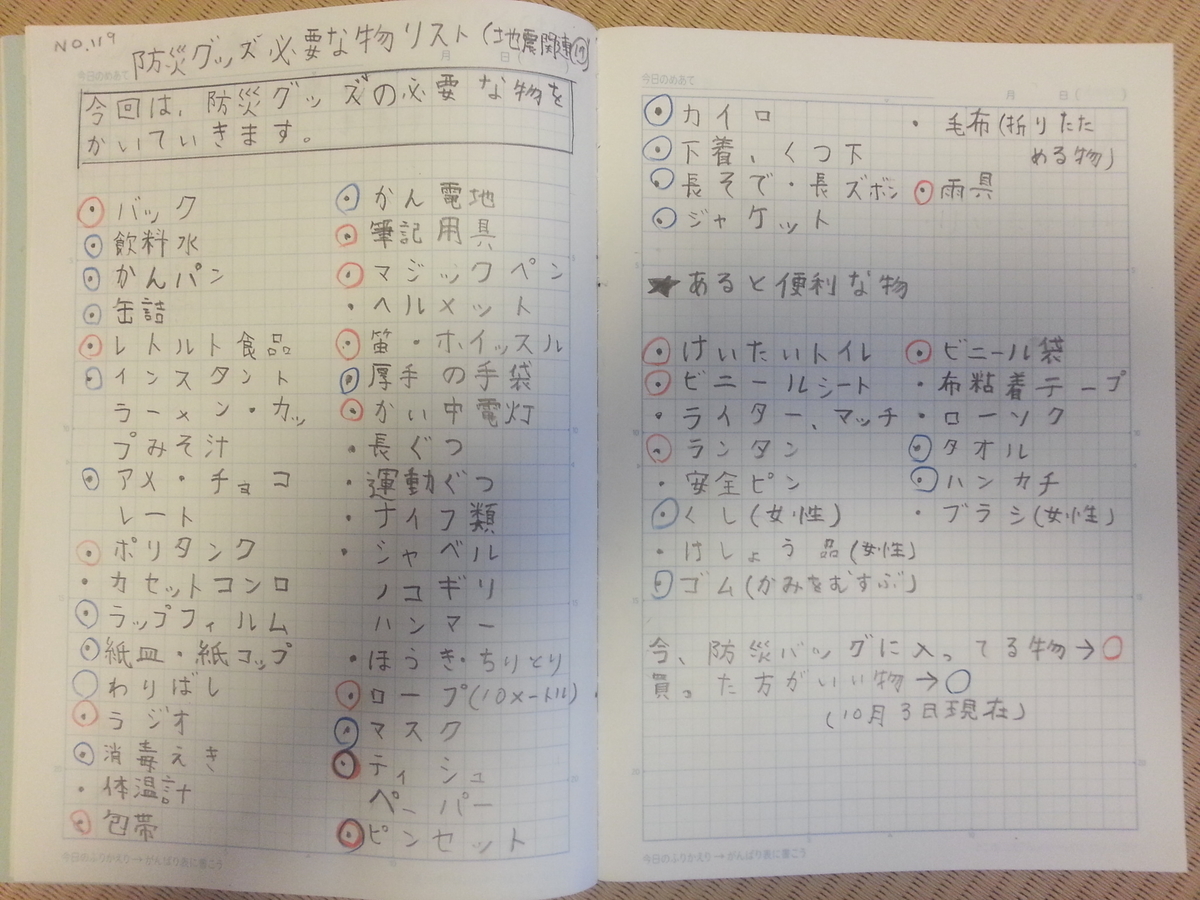 NO.119
防災グッズ必要な物リスト(地震関連⑰)
今日のめあて 月 日( )
今回は、防災グッズの必要な物を
かいていきます。
・バック
・飲料水
・かんパン
・缶詰
・レトルト食品
・インスタント
ラーメン・カッ
プみそ汁
・アメ・チョコ
レート
・ポリタンク
・カセットコンロ
・ラップフィルム
・紙皿・紙コップ
わりばし
・ラジオ
・消毒えき
・体温計
・包帯
・かん電地
・筆記用具
・マジックペン
・ヘルメット
・笛・ホイッスル
・厚手の手袋
・かい中電灯
・長ぐつ
・運動ぐつ
・ナイフ類
・シャベル
ノコギリ
ハンマー
・ほうき・ちりとり
・ロープ(10メートル)
・マスク
・ティシュ
ペーパー
・ピンセット
今日のふりかえり→がんばり表に書こう
今日のめあて
月 日( )
・カイロ
・下着、くつ下
・長そで・長ズボン
・ジャケット
・毛布(折りたた
める物)
・雨具
★あると便利な物
・けいたいトイレ
・ビニールシート
・ライター、マッチ
・ランタン
・安全ピン
・くし(女性)
・けしょう品(女性)
・ゴム(かみをむすぶ)
・ビニール袋
・布粘着テープ
・ローソク
・タオル
・ハンカチ
・ブラシ(女性)
今、防災バッグに入ってる物→○
買った方がいい物→○
(10月3日現在)
今日のふりかえり→がんばり表に書こう